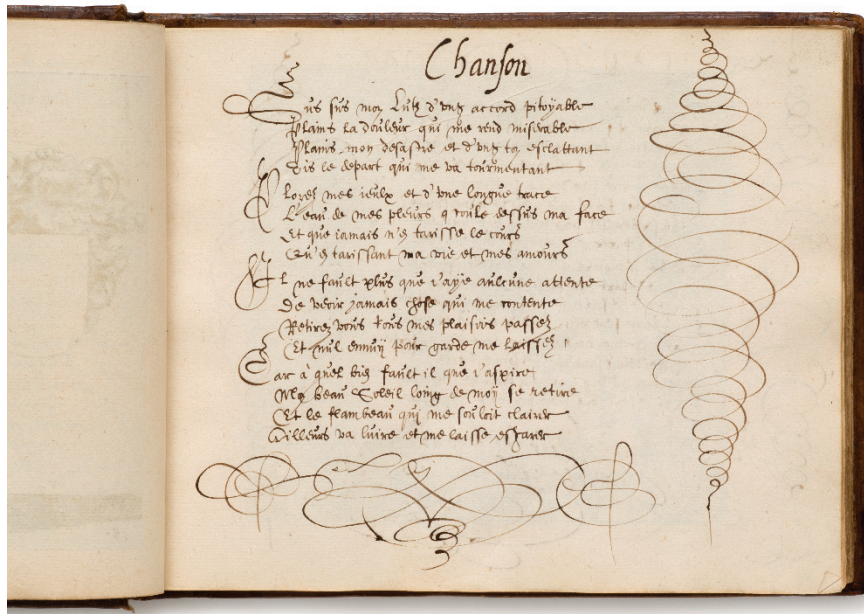 Chanson
Sus sus moy Lutz d'ung accord pitoyable
Plains la douleur qui me rend miserable
Plains mon desastre et d'ung to esclattant
Dis le depart qui me va tourmentant
Plorez mes ieulx et d'une longue trace
L'eau de mes pleurs q roule dessus ma face
Et que iamais n'e tarisse le cours
Qu'e tarissant ma vie et mes amours
Il ne fault plus que i'aye aulcune attente
De veoir jamais chose qui me contente
Retirez vous tous mes plaisirs passez
Et nul ennuy pour garde me laissez
Car à quel bie fault il que i'aspire
Mo beau Soleil loing de moy se retire
Et le flambeau qui me souloit clairer
Ailleurs va luire et me laisse esgarer